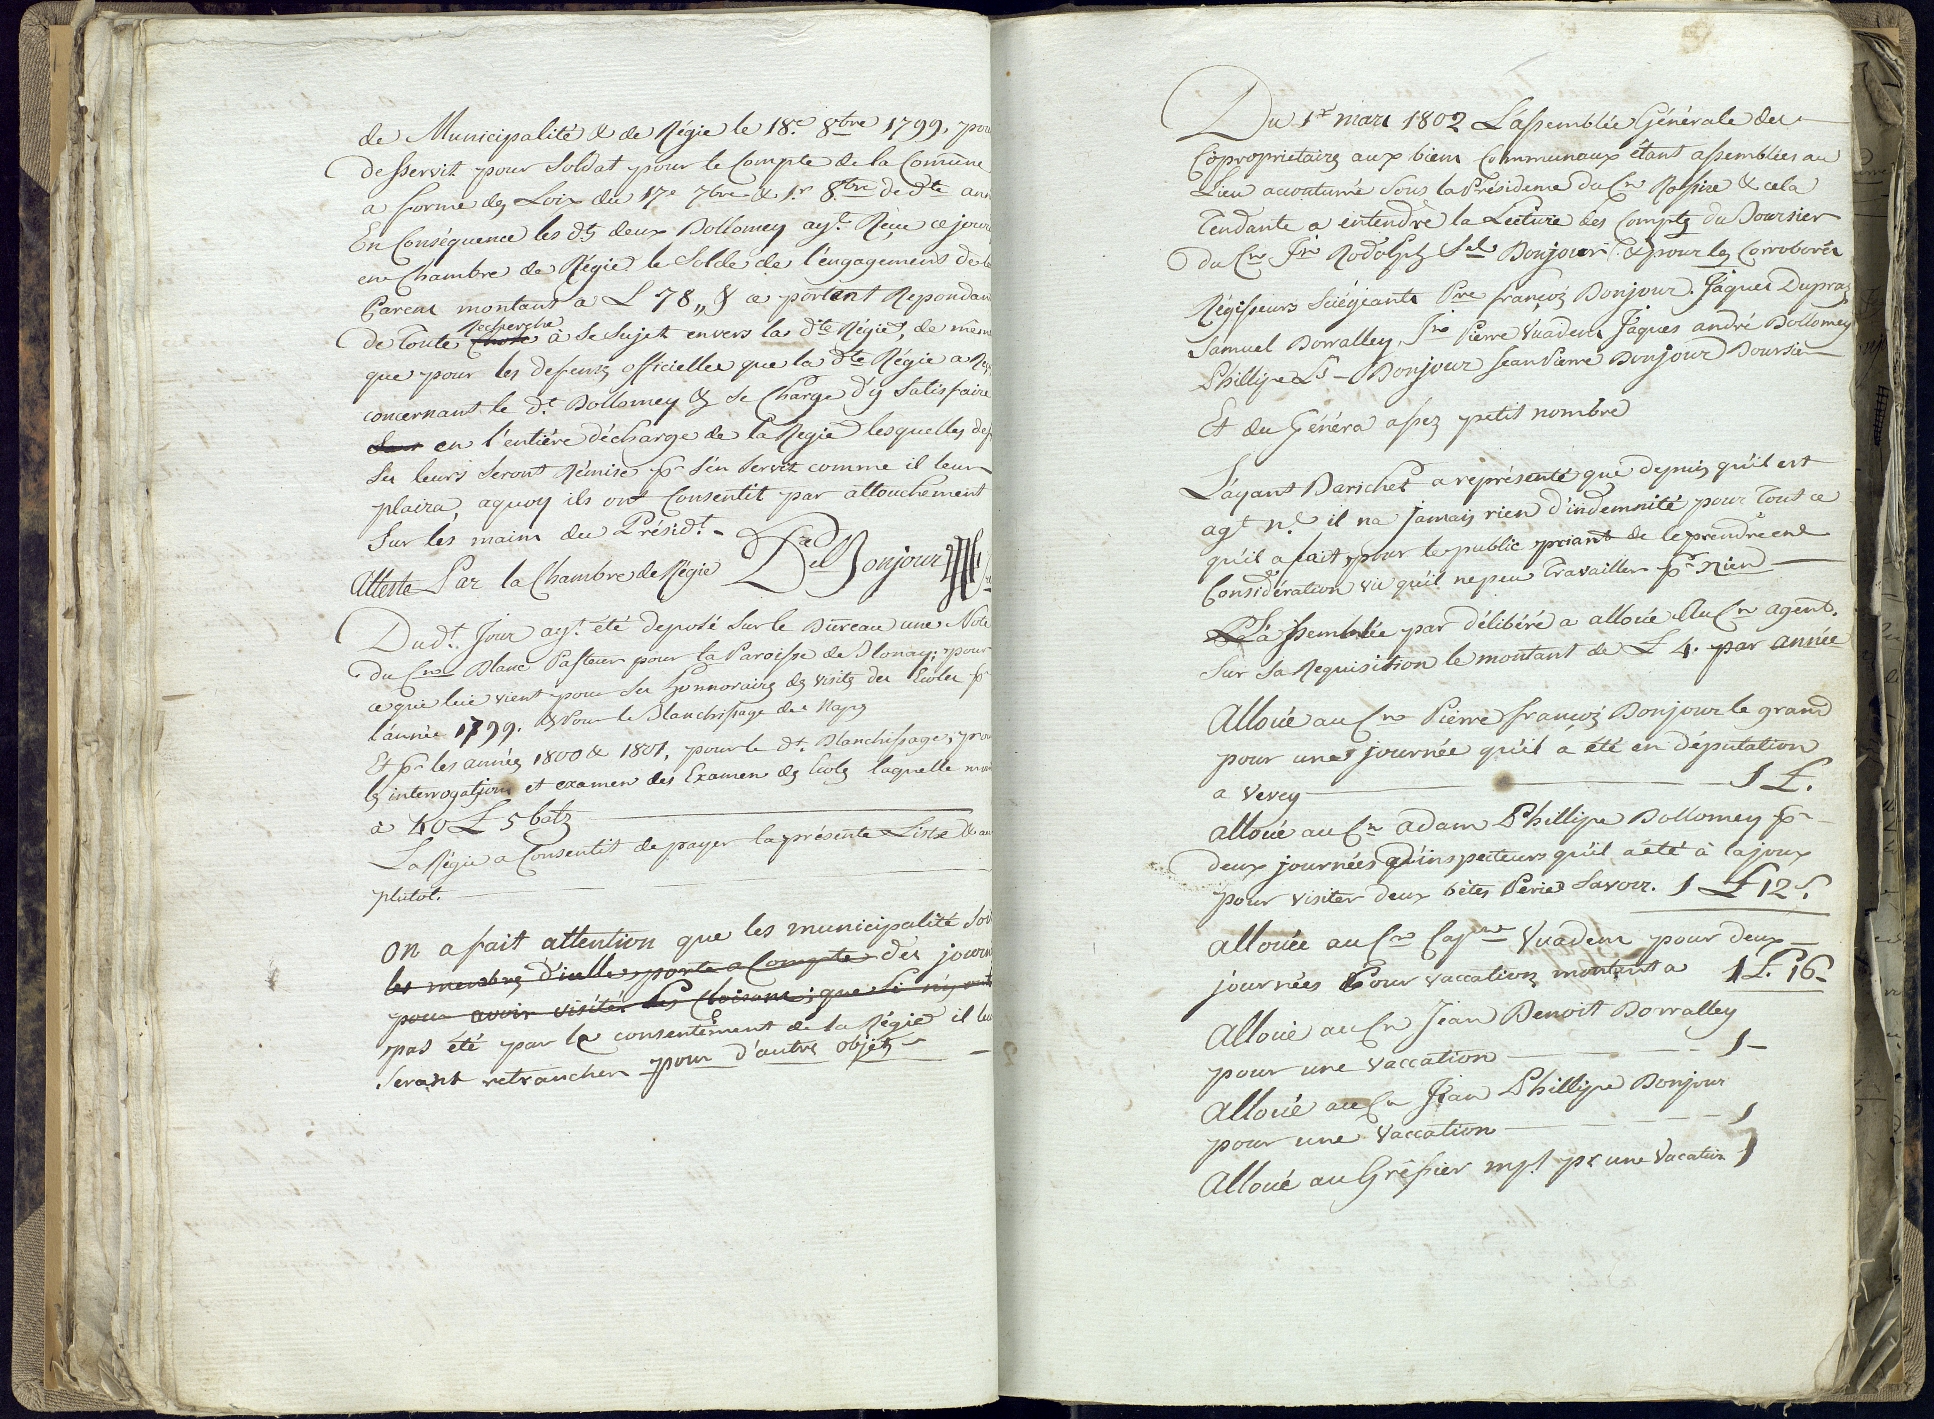 de Municipalité & de Régie le 18.e 8bre 1799, pour
desservit pour Soldat pour le Compte de la Comune
a forme des Loix du 17e 7bre & 1.r 8bre de dte ann
En Conséquence les dts deux Dollomey ayt. Reçu ce jour
en Chambre de Régie le Solde de l'engagement de
Parent montant a L 78 „ & a portent Repondant
de toute Recherche à Se Sujet envers la dte Régie, de même
que pour les defense officielle que la dte Régie a
concernant le dt. Dollomey & Se Charge d'y Satisfaire
en l'entiére décharge de la Regie lesquelles
leurs Seront Rémise pr S'én Servir comme il leur
plaira, aquoy ils ont Consentit par attouchement
Sur lés mains du Présidt. -
Atteste Par la Chambre de Régie Bonjour
Du dt. Jour ayt. été deposé Sur le Bureau une Note
du Cn Blanc Pasteur pour la Paroisse de Blonay; pour
ce que lui vient pour Ses Honnoraires des visites des Ecoles pr
l'année 1799. & Pour le Blanchissage des Napes
Et pr les années 1800 & 1801, pour le dt. Blanchissage, pour
les interrogations et examen des Examen des Ecoles laquelle
à 40 L 5 batz
La Régie a Consentit de payer la présente Liste
plutot.
On a fait attention que les municipalité
les membres d'icelle porte a Compte des journ
pour avoir visité les Cloisons; que Si n'y
pas été par le consentement de la Régie il leur
Serant retrancher pour d'autre objets
Du 1er mars 1802 L'assemblée Générale des
Coproprietaires aux biens Communaux étant assemblées au
Lieu accoutumé Sous la Présidence du Cn Rossire & cela
Tendante a entendre la Lecture des Comptes du Boursier
du Cn Jn Rodolph Sel Bonjour & pour les Corroborér
Régisseurs Sciégeants Pre françois Bonjour. Jaques Dupraz
Samuel Borralley, Jn Pierre Vuadens Jaques andré Dollomey
Phillipe Ls - Bonjour Jean Pierre Bonjour Boursier
Et du Généra assez petit nombre
L'ayant Barichet a représenté que depuis qu'il est
agt nl il na jamais rien d'indemnité pour Tout ce
qu'il a fait pour le public priant de le prendre en
Considération vu qu'il ne peu Travailler pr Rien
L'assemblée par délibéré a alloué Au Cn agent.
Sur Sa Requisition le montant de L 4. par année
Alloué au Cn Pierre françois Bonjour le grand
pour une journée qu'il a été en députation
a Vevey 1 L.
alloué au Cn adam Phillipe Dollomey pr
deux journées d'inspecteurs qu'il a été à lajoux
pour visiter deux bêtes Périe Savoir. 1 L 12 S.
allouée au Cn Capne Vuadens pour deux
journées Pour vaccations montant a 1 L. 16
Alloué au Cn Jean Benoit Borralley
pour une vaccation 1
Alloué au Cn Jean Phillipe Bonjour
pour une vaccation 1
Alloué au Gréfier mpl pr une Vacation 1